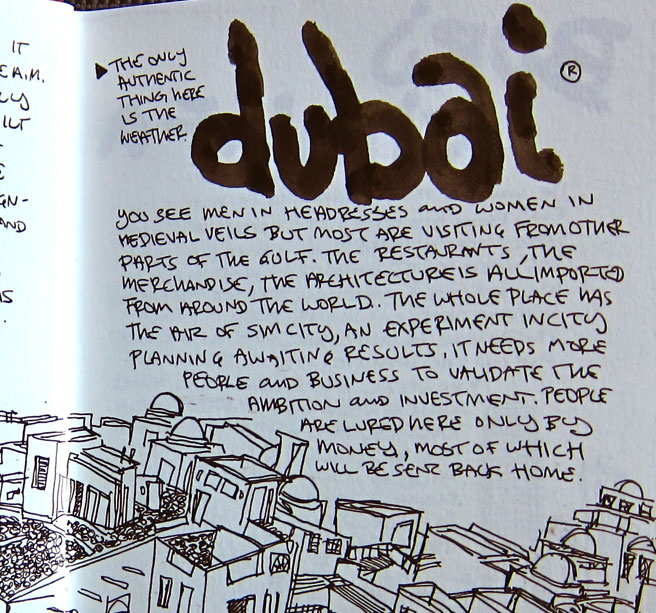 IT
E A.M.
LY
ILT
E
GN-
AND
AS
▶ THE ONLY
AUTHENTIC
THING HERE
IS THE
WEATHER.
dubai ®
YOU SEE MEN IN HEADRESSES and WOMEN IN
MEDIEVAL VEILS BUT MOST ARE VISITING FROM OTHER
PARTS OF THE GULF. THE RESTAURANTS, THE
MERCHANDISE, THE ARCHITECTURE IS ALL IMPORTED
FROM AROUND THE WORLD. THE WHOLE PLACE HAS
THE AIR OF SIM CITY, AN EXPERIMENT IN CITY
PLANNING AWAITING RESULTS. IT NEEDS MORE
PEOPLE and BUSINESS TO VALIDATE THE
AMBITION and INVESTMENT. PEOPLE
ARE LURED HERE ONLY BY
MONEY, MOST OF WHICH
WILL BE SENT BACK HOME.